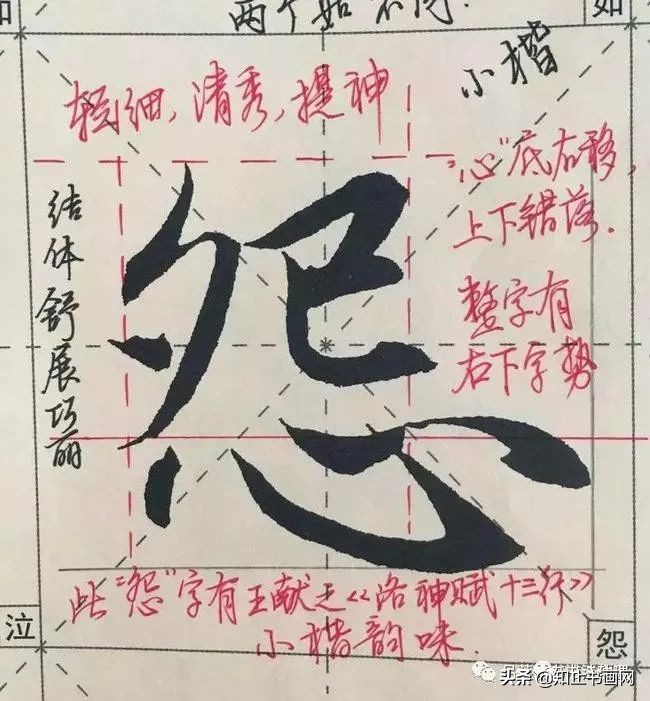 如
两个如不同.
如
轻细,清秀,提神
小楷
"心"底右移,
上下错落.
整字有
右下字势
结体舒展巧丽
怨
此"怨"字有王献之《洛神赋十三行》
小楷韵味.
泣
怨
头条@知止书画网